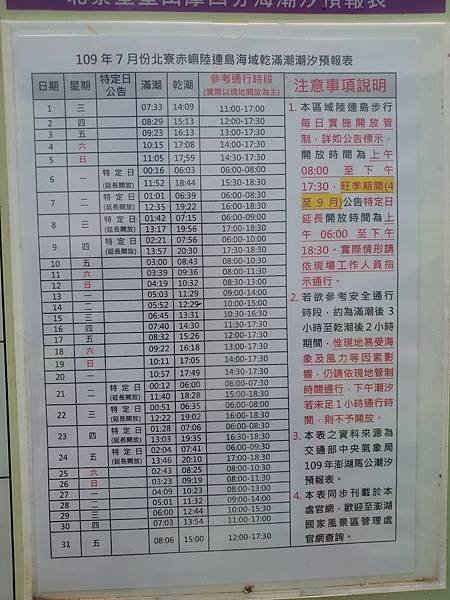 北寮奎壁山摩西分海潮汐預報表
109 年 7 月份北寮赤嶼陸連島海域乾滿潮潮汐預報表
日期 星期 特定日公告 滿潮 乾潮 參考通行時段 (實際以現地開放為主)
1 三 07:33 14:09 11:00-17:00
2 四 08:29 15:13 12:00-17:30
3 五 09:23 16:13 13:00-17:30
4 六 10:15 17:08 14:00-17:30
5 日 11:05 17:59 14:30-17:30
6 一 特定日 (延長開放) 00:16 06:03 06:00-08:00
11:52 18:44 15:30-18:30
7 二 特定日 (延長開放) 01:01 06:39 06:00-08:30
12:35 19:22 16:00-18:30
8 三 特定日 (延長開放) 01:42 07:15 06:00-09:00
13:17 19:56 17:00-18:30
9 四 特定日 (延長開放) 02:21 07:56 06:00-10:00
13:57 20:30 17:30-18:30
10 五 03:00 08:43 08:00-10:30
11 六 03:39 09:36 08:00-11:30
12 日 04:19 10:32 08:30-12:30
13 一 05:03 11:29 09:00-14:00
14 二 05:52 12:29 10:00-15:00
15 三 06:45 13:31 10:30-16:30
16 四 07:40 14:30 11:30-17:30
17 五 08:32 15:26 12:00-17:30
18 六 09:22 16:18 13:00-17:30
19 日 10:11 17:05 14:00-17:30
20 一 10:57 17:49 14:30-17:30
21 二 特定日 (延長開放) 00:12 06:00 06:00-07:30
11:40 18:28 15:00-18:30
22 三 特定日 (延長開放) 00:51 06:35 06:00-08:00
12:22 19:02 16:00-18:30
23 四 特定日 (延長開放) 01:28 07:06 06:00-08:30
13:03 19:35 16:30-18:30
24 五 特定日 (延長開放) 02:04 07:41 06:00-09:30
13:46 20:10 17:00-18:30
25 六 02:43 08:25 08:00-10:30
26 日 03:23 09:19 08:00-11:30
27 一 04:09 10:23 08:00-13:00
28 二 05:01 11:32 09:00-14:00
29 三 06:00 12:44 10:00-15:30
30 四 07:03 13:54 11:00-17:00
31 五 08:06 15:00 12:00-17:30
注意事項說明
1. 本區域陸連島步行
每日實施開放管
制，詳如公告標示，
開放時間為上午
08:00 至下午
17:30，旺季期間(4
至 9 月)公告特定日
延長開放時間為上
午 06:00 至下午
18:30。實際情形請
依現場工作人員指
示通行。
2. 若欲參考安全通行
時段，約為滿潮後 3
小時至乾潮後 2 小
時期間，惟現地易受海
象及風力等因素影
響，仍請依現地管制
時間通行，下午潮汐
若未足 1 小時通行時
間，則不予開放。
3. 本表之資料來源為
交通部中央氣象局
109 年澎湖馬公潮汐
預報表。
4. 本表同步刊載於本
處官網，歡迎至澎湖
國家風景區管理處
官網查詢。